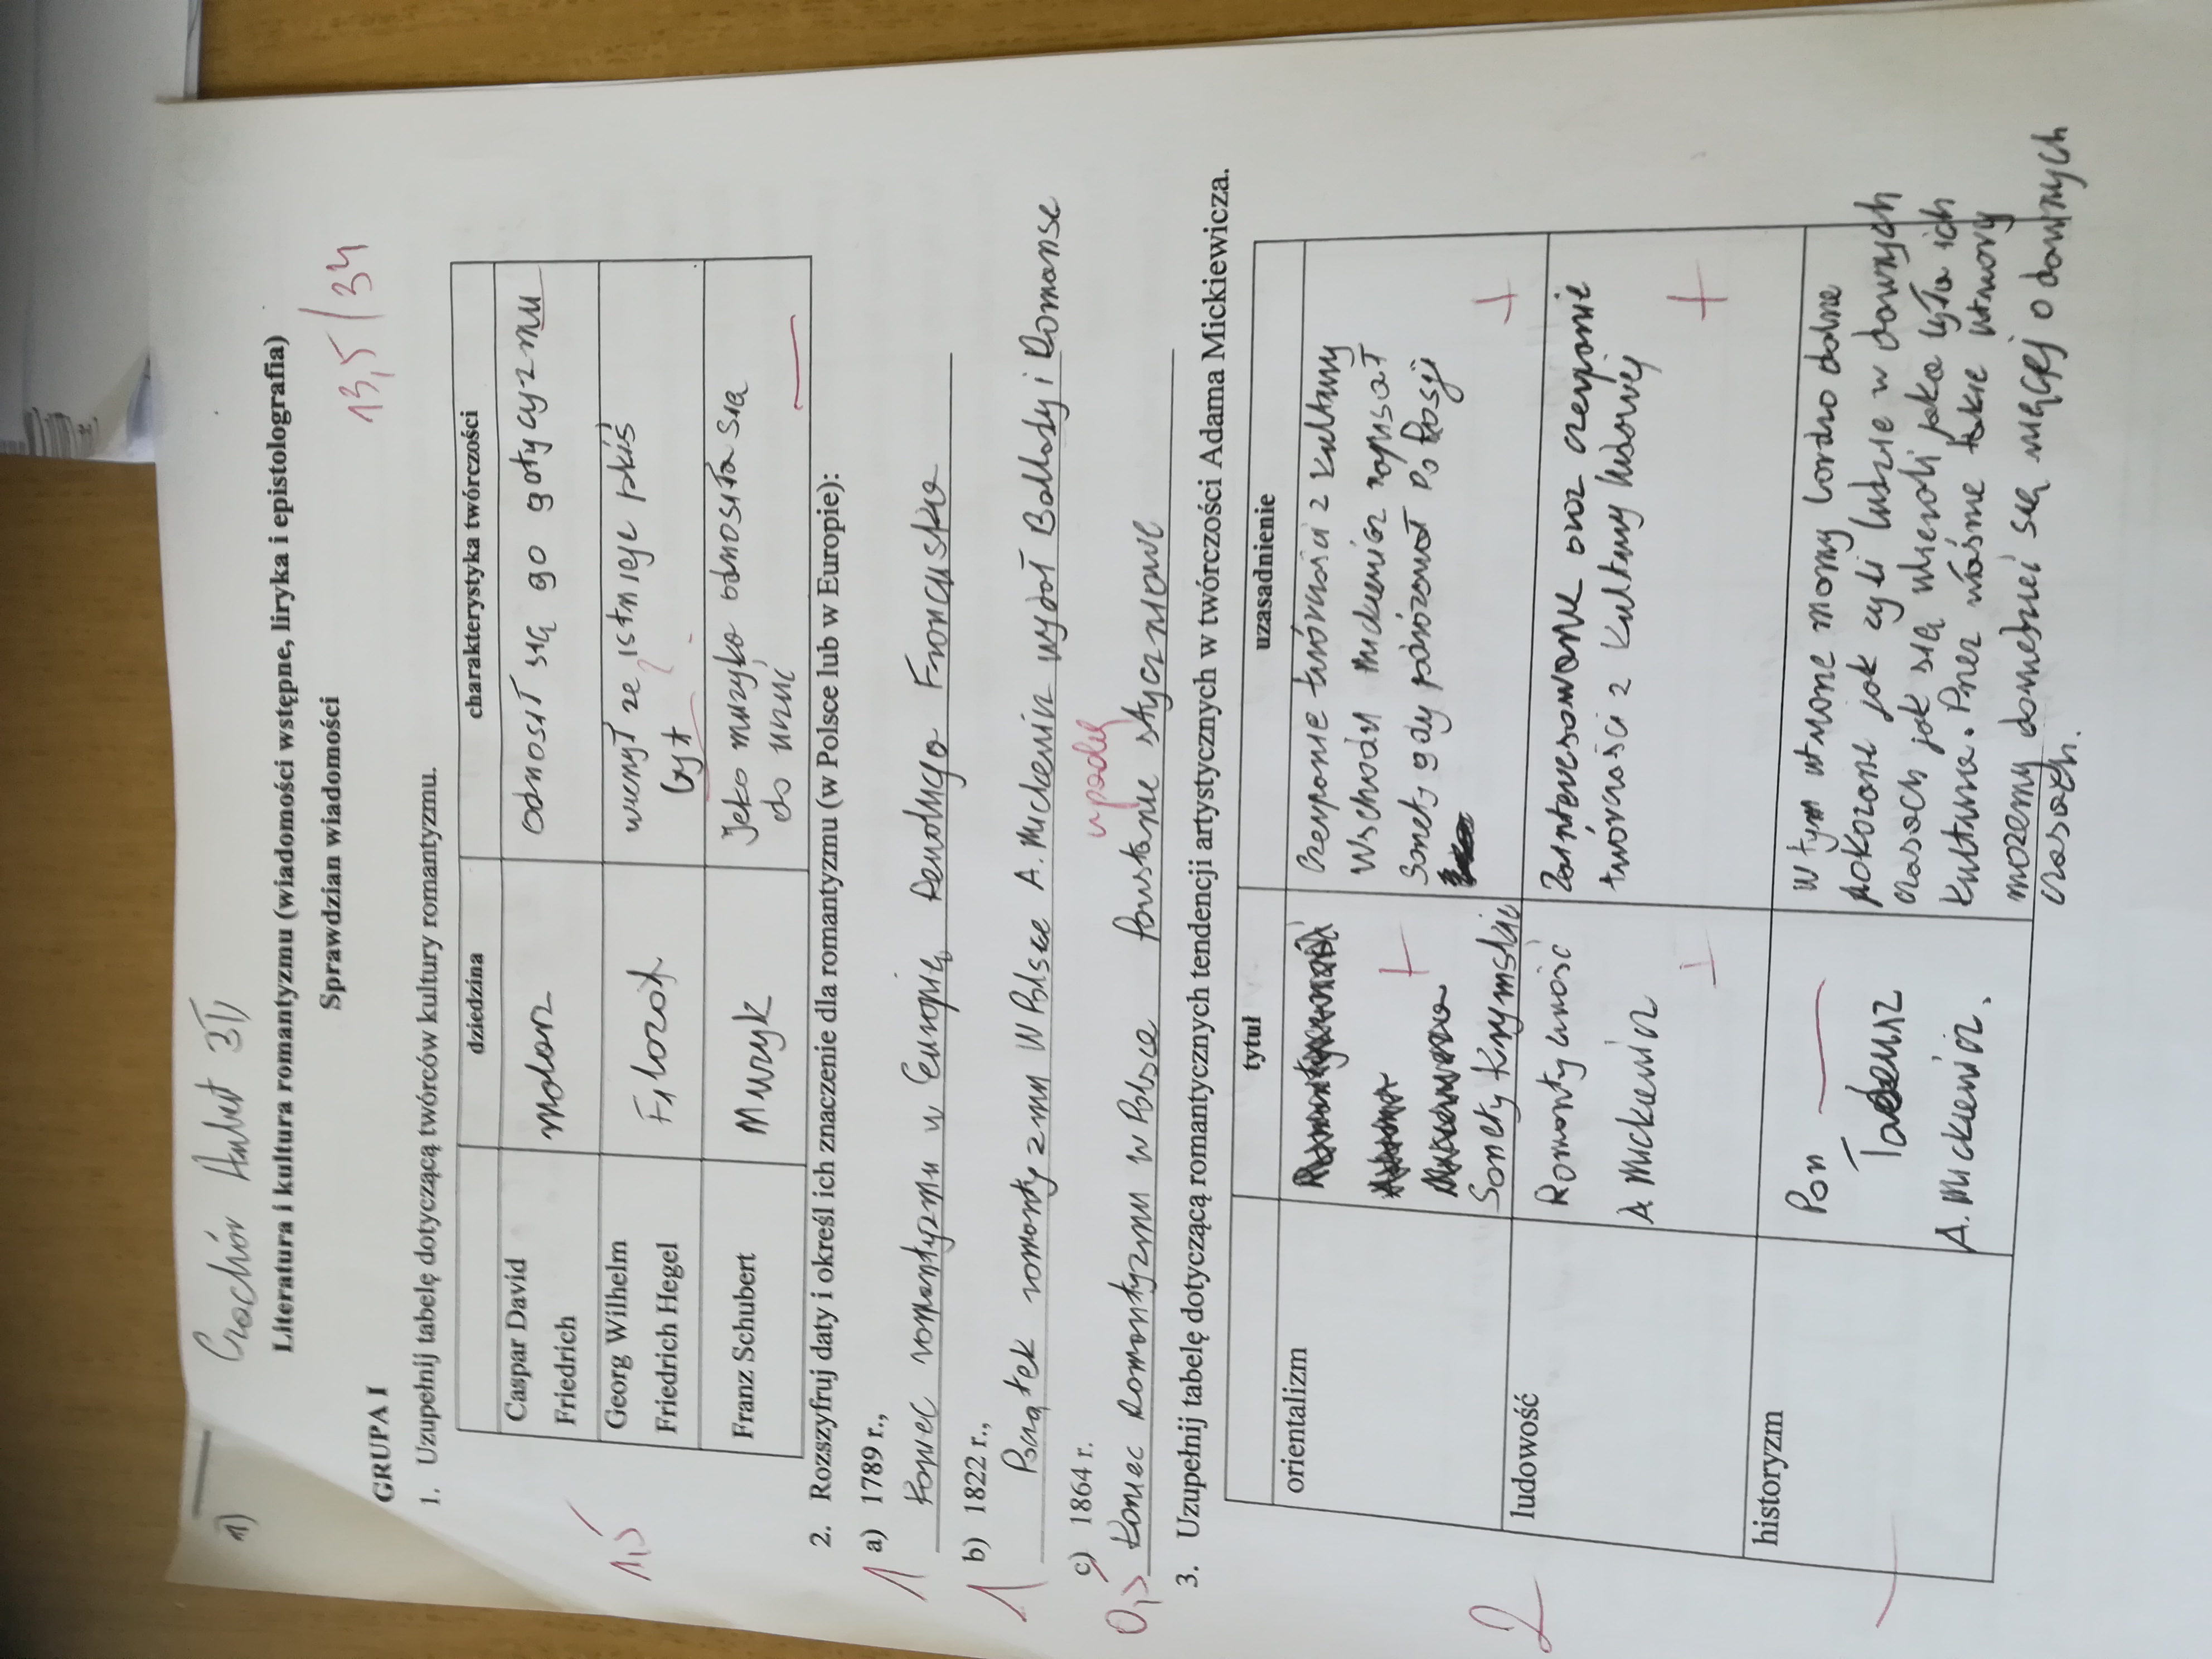 1)
Hubert 3T
Literatura i kultura romantyzmu (wiadomości wstępne, liryka i epistolografia)
Sprawdzian wiadomości
13,5/34
GRUPA I
1. Uzupełnij tabelę dotyczącą twórców kultury romantyzmu.
dziedzina charakterystyka twórczości
Caspar David Friedrich
malarz
odnosił się go gotycyzmu
Georg Wilhelm Friedrich Hegel
Filozof
wierzył ze istnieje jakiś
byt
Franz Schubert
Muzyk
Jeko muzyka odnosiła sia
do
1,5
2. Rozszyfruj daty i określ ich znaczenie dla romantyzmu (w Polsce lub w Europie):
a) 1789 r.,
1
koniec romantyzmu w Europię Rewolucja Francuska
b) 1822 r.,
1
Początek romantyzmu W Polsce A. Mickewicz wydał Ballady i Romanse
c) 1864 r.
upadek
0,5
koniec Romantyzmu w Polsce Powstanie styczniowe
3. Uzupełnij tabelę dotyczącą romantycznych tendencji artystycznych w twórczości Adama Mickiewicza.
tytuł uzasadnienie
orientalizm
Sonety Krymskie
+
Czerpanie twórczości z kultury
Wschodu Mickewicz napisał
Sonety gdy podróżował Po Rosji
+
2
ludowość
Romantyczność
A Mickewicz
+
Zainteresowanie oraz czerpanie
twórczości z kultury ludowej
+
historyzm
Pan
Tadeusz
A. Mickewicz.
W tym utworze mamy bardzo dobrze
pokazane jak żyli ludzie w dawnych
czasach jak się ubierali jaka była ich
kulturea. Przez właśne takie utwory
możemy dowiedzieć się więcej o dawnych
czasach.